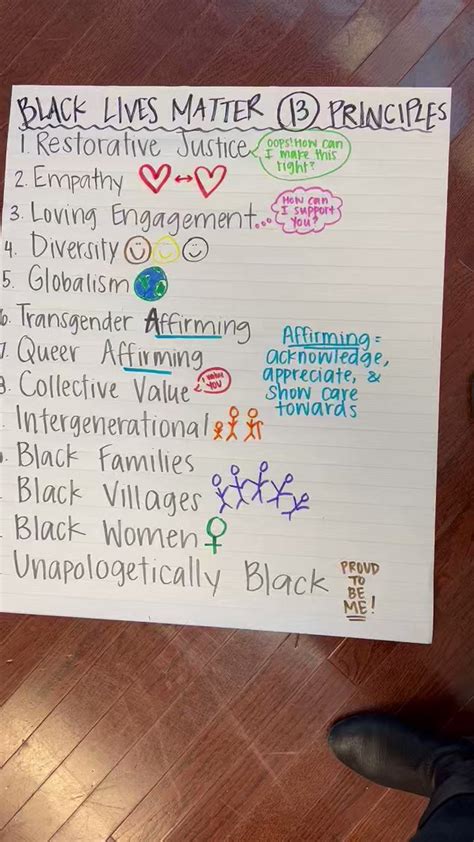 BLACK LIVES MATTER 13 PRINCIPLES
1. Restorative Justice
OOPS! How can
I make this
right?
2. Empathy
3. Loving Engagement...
How can
I support
you?
4. Diversity
5. Globalism
6. Transgender Affirming
7. Queer Affirming
Affirming =
acknowledge,
appreciate, &
show care
towards
8. Collective Value
I value
you
Intergenerational
Black Families
Black Villages
Black Women
Unapologetically Black
PROUD
TO
BE
ME!